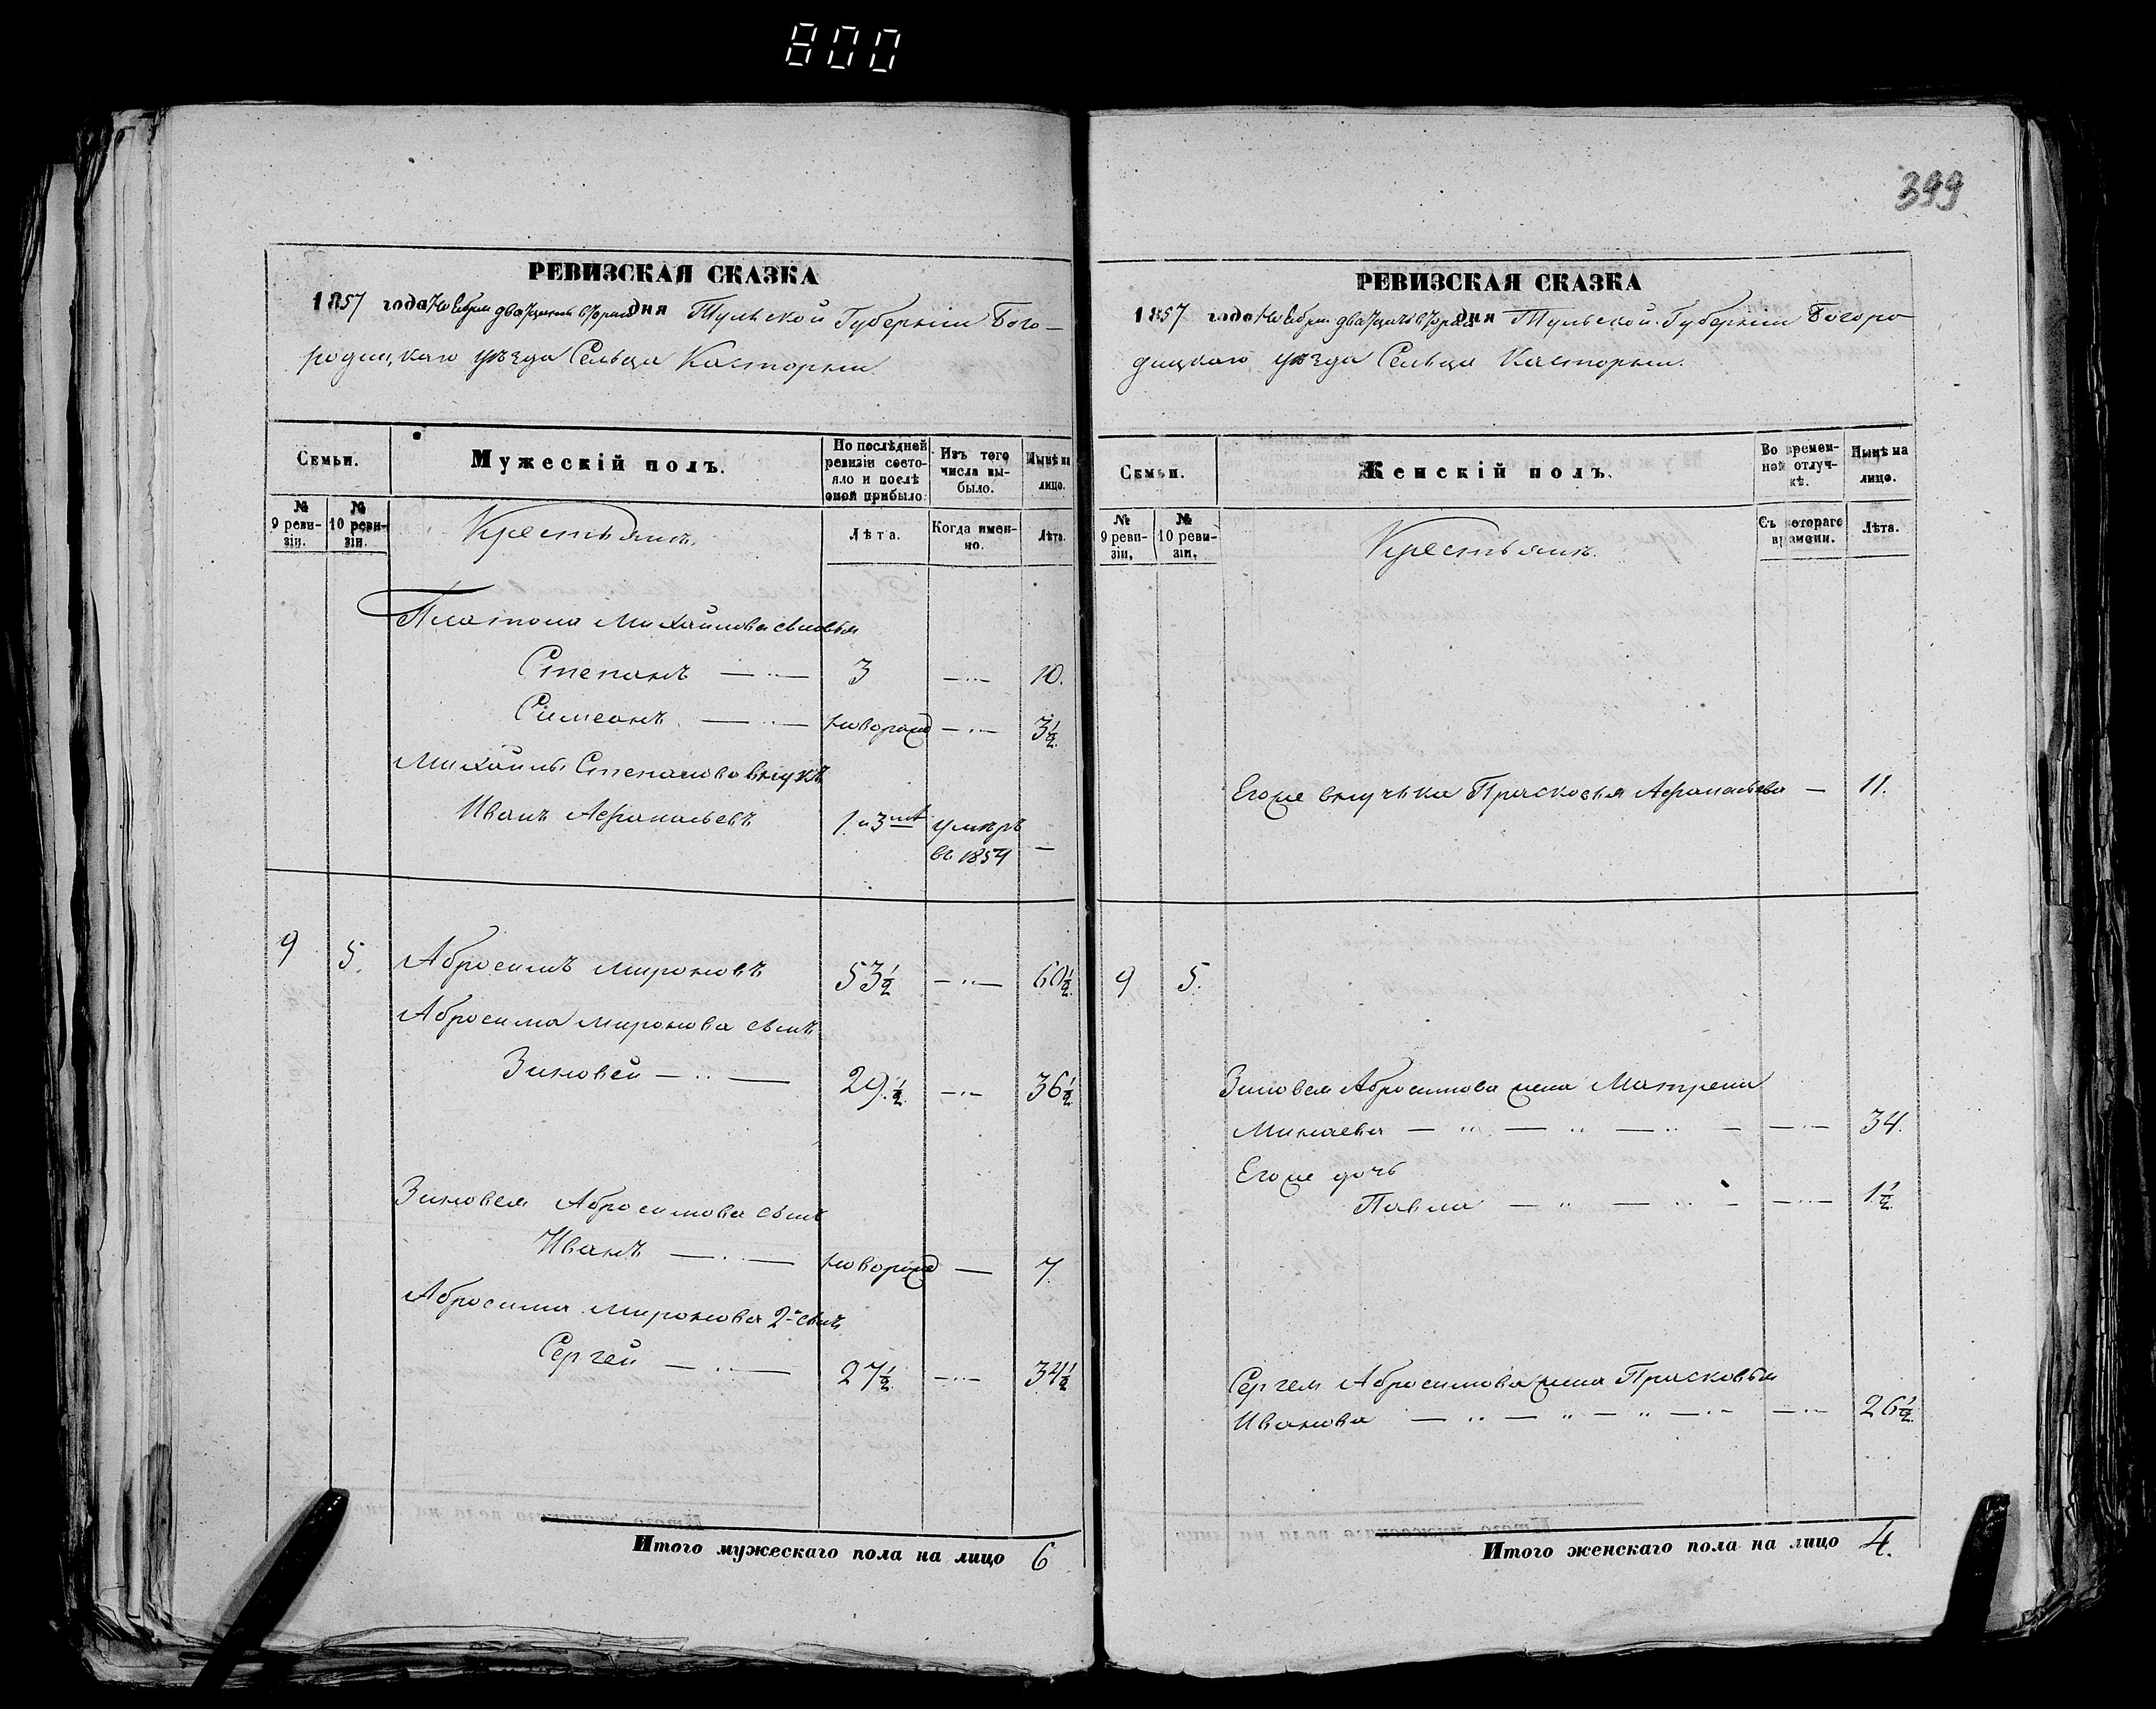 800
РЕВИЗСКАЯ СКАЗКА
1857 года Ноября двадцать втораго дня Тульской Губерніи Бого-
родицкаго уѣзда Сельца Касторни
Семьи.
Мужескій полъ.
По послѣдней ревизіи состо-
яло и послѣ оной прибыло.
Изъ того числа вы-
было.
Нынѣ на лицо.
№ 9 реви-
зіи.
№ 10 реви-
зіи.
Крестьянъ.
Лѣта.
Когда имен-
но.
Лѣта.
Платона Михайлова сыновья
Степанъ — 3 — 10.
Симеонъ — новорожд — 3½.
Михайлы Степанова внукъ
Иванъ Афанасьевъ 1. и 3 умеръ —
въ 1854
9 5. Абросимъ Мироновъ 53½ — 60½.
Абросима Миронова сынъ
Зиновей — 29½. — 36½
Зиновея Абросимова сынъ
Иванъ — новорожд — 7.
Абросима Миронова 2-й сынъ
Сергей — 27½. — 34½
Итого мужескаго пола на лицо 6
399
РЕВИЗСКАЯ СКАЗКА
1857 года Ноября двадцать втораго дня Тульской Губерніи Богоро-
дицкаго уѣзда Сельца Касторни.
Семьи.
Женскій полъ.
Во времен-
ной отлуч-
кѣ.
Нынѣ на лицо.
№ 9 реви-
зіи.
№ 10 реви-
зіи.
Крестьянъ.
Съ котораго времени.
Лѣта.
Его же внучька Прасковья Афанасьева — 11.
9 5.
Зиновея Абросимова жена Матрена
Минаева — 34.
Его же дочь
Павла — 1½.
Сергея Абросимова жена Прасковья
Иванова — 26½.
Итого женскаго пола на лицо 4.